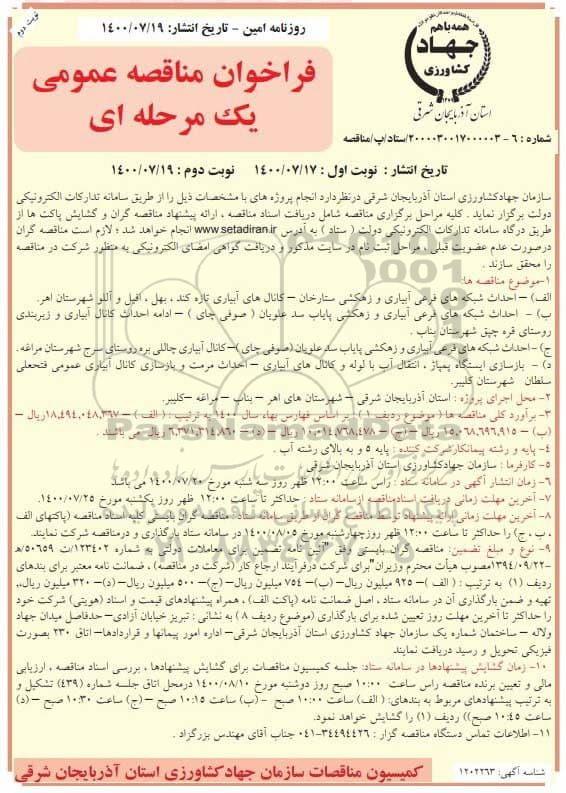 نوبت دوم
روزنامه امین - تاریخ انتشار: ۱۴۰۰/۰۷/۱۹
همه با هم
جهاد
کشاورزی
استان آذربایجان شرقی
فراخوان مناقصه عمومی
یک مرحله ای
شماره : ۶ - ۲۰۰۰۰۳۰۰۱۷۰۰۰۰۰۳/ستاد/پ/مناقصه
تاریخ انتشار : نوبت اول : ۱۴۰۰/۰۷/۱۷ نوبت دوم : ۱۴۰۰/۰۷/۱۹
سازمان جهادکشاورزی استان آذربایجان شرقی درنظردارد انجام پروژه های با مشخصات ذیل را از طریق سامانه تدارکات الکترونیکی
دولت برگزار نماید . کلیه مراحل برگزاری مناقصه شامل دریافت اسناد مناقصه ، ارائه پیشنهاد مناقصه گران و گشایش پاکت ها از
طریق درگاه سامانه تدارکات الکترونیکی دولت ( ستاد ) به آدرس www.setadiran.ir انجام خواهد شد ؛ لازم است مناقصه گران
درصورت عدم عضویت قبلی ، مراحل ثبت نام در سایت مذکور و دریافت گواهی امضای الکترونیکی به منظور شرکت در مناقصه
را محقق سازند .
۱-موضوع مناقصه ها:
الف) – احداث شبکه های فرعی آبیاری و زهکشی ستارخان – کانال های آبیاری تازه کند ، بهل ، افیل و آللو شهرستان اهر.
ب) – احداث شبکه های فرعی آبیاری و زهکشی پایاب سد علویان ( صوفی چای ) – ادامه احداث کانال آبیاری و زیربندی
روستای قره چپق شهرستان بناب .
ج) -احداث شبکه های فرعی آبیاری و زهکشی پایاب سد علویان (صوفی چای )–کانال آبیاری چاللی بره روستای سرج شهرستان مراغه .
د) – بازسازی ایستگاه پمپاژ ، انتقال آب با لوله و کانال های آبیاری – احداث مرمت و بازسازی کانال آبیاری عمومی فتحعلی
سلطان شهرستان کلیبر.
۲- محل اجرای پروژه : استان آذربایجان شرقی – شهرستان های اهر – بناب – مراغه –کلیبر.
۳- برآورد کلی مناقصه ها ( موضوع ردیف ۱ ) : بر اساس فهارس بهاء سال ۱۴۰۰ به ترتیب : ( الف) – ۱۸,۴۹۴,۰۴۸,۳۶۷ریال –
(ب) – ۱۵,۰۶۸,۶۹۶,۹۱۵ ریال –(ج) – ۱۰,۰۱۴,۷۶۸,۴۷۸ ریال – (د)– ۶,۳۷۱,۳۱۴,۸۶۰ ریال می باشند .
۴- پایه و رشته پیمانکارشرکت کننده : پایه ۵ و به بالای رشته آب .
۵- کارفرما : سازمان جهادکشاورزی استان آذربایجان شرقی
۶- زمان انتشار آگهی در سامانه ستاد : راس ساعت ۱۲:۰۰ ظهر روز سه شنبه مورخ ۱۴۰۰/۰۷/۲۰ می باشد
۷- آخرین مهلت زمانی دریافت اسنادمناقصه ازسامانه ستاد : حداکثر تا ساعت ۱۲:۰۰ ظهر روز یکشنبه مورخ ۱۴۰۰/۰۷/۲۵.
۸- آخرین مهلت زمانی ارائه پیشنهاد توسط مناقصه گران از طریق سامانه ستاد : مناقصه گران بایستی کلیه اسناد مناقصه (پاکتهای الف
، ب ، ج) را حداکثر تا ساعت ۱۲:۰۰ ظهر روزچهارشنبه مورخ ۱۴۰۰/۰۸/۰۵ در سامانه ستاد بارگذاری و درمناقصه شرکت نمایند.
۹- نوع و مبلغ تضمین: مناقصه گران بایستی وفق "آئین نامه تضمین برای معاملات دولتی به شماره ۱۲۳۴۰۲/ت۵۰۶۵۹ه
-۱۳۹۴/۰۹/۲۲مصوب هیأت محترم وزیران"برای شرکت درفرآیند ارجاع کار (شرکت در مناقصه) ، ضمانت نامه معتبر برای بندهای
ردیف (۱) به ترتیب : ( الف )– ۹۲۵ میلیون ریال– (ب)– ۷۵۴ میلیون ریال–(ج)– ۵۰۰ میلیون ریال–(د)– ۳۲۰ میلیون ریال,,
تهیه و ضمن بارگذاری آن در سامانه ستاد ، اصل ضمانت نامه (پاکت الف) ، همراه پیشنهادهای قیمت و اسناد (هویتی) شرکت خود
را حداکثر تا آخرین مهلت روز تعیین شده برای بارگذاری (موضوع ردیف ۸ ) به نشانی : تبریز خیابان آزادی– حدفاصل میدان جهاد
ولاله – ساختمان شماره یک سازمان جهاد کشاورزی استان آذربایجان شرقی– اداره امور پیمانها و قراردادها– اتاق ۲۳۰ بصورت
فیزیکی تحویل و رسید دریافت نمایند
۱۰- زمان گشایش پیشنهادها در سامانه ستاد: جلسه کمیسیون مناقصات برای گشایش پیشنهادها ، بررسی اسناد مناقصه ، ارزیابی
مالی و تعیین برنده مناقصه راس ساعت ۱۰:۰۰ صبح روز دوشنبه مورخ ۱۴۰۰/۰۸/۱۰ درمحل اتاق جلسه شماره (۴۳۹) تشکیل و
به ترتیب پیشنهادهای مربوط به بندهای: ( الف) ساعت ۱۰:۰۰ صبح - (ب) ساعت ۱۰:۱۵ صبح – (ج) ساعت ۱۰:۳۰ صبح – (د)
ساعت ۱۰:۴۵ صبح)) ردیف (۱) را گشایش خواهد نمود.
۱۱- اطلاعات تماس دستگاه مناقصه گزار : ۳۴۴۹۴۴۲۶-۰۴۱ جناب آقای مهندس بزرگزاد .
شناسه آگهی: ۱۲۰۲۲۶۳
کمیسیون مناقصات سازمان جهادکشاورزی استان آذربایجان شرقی